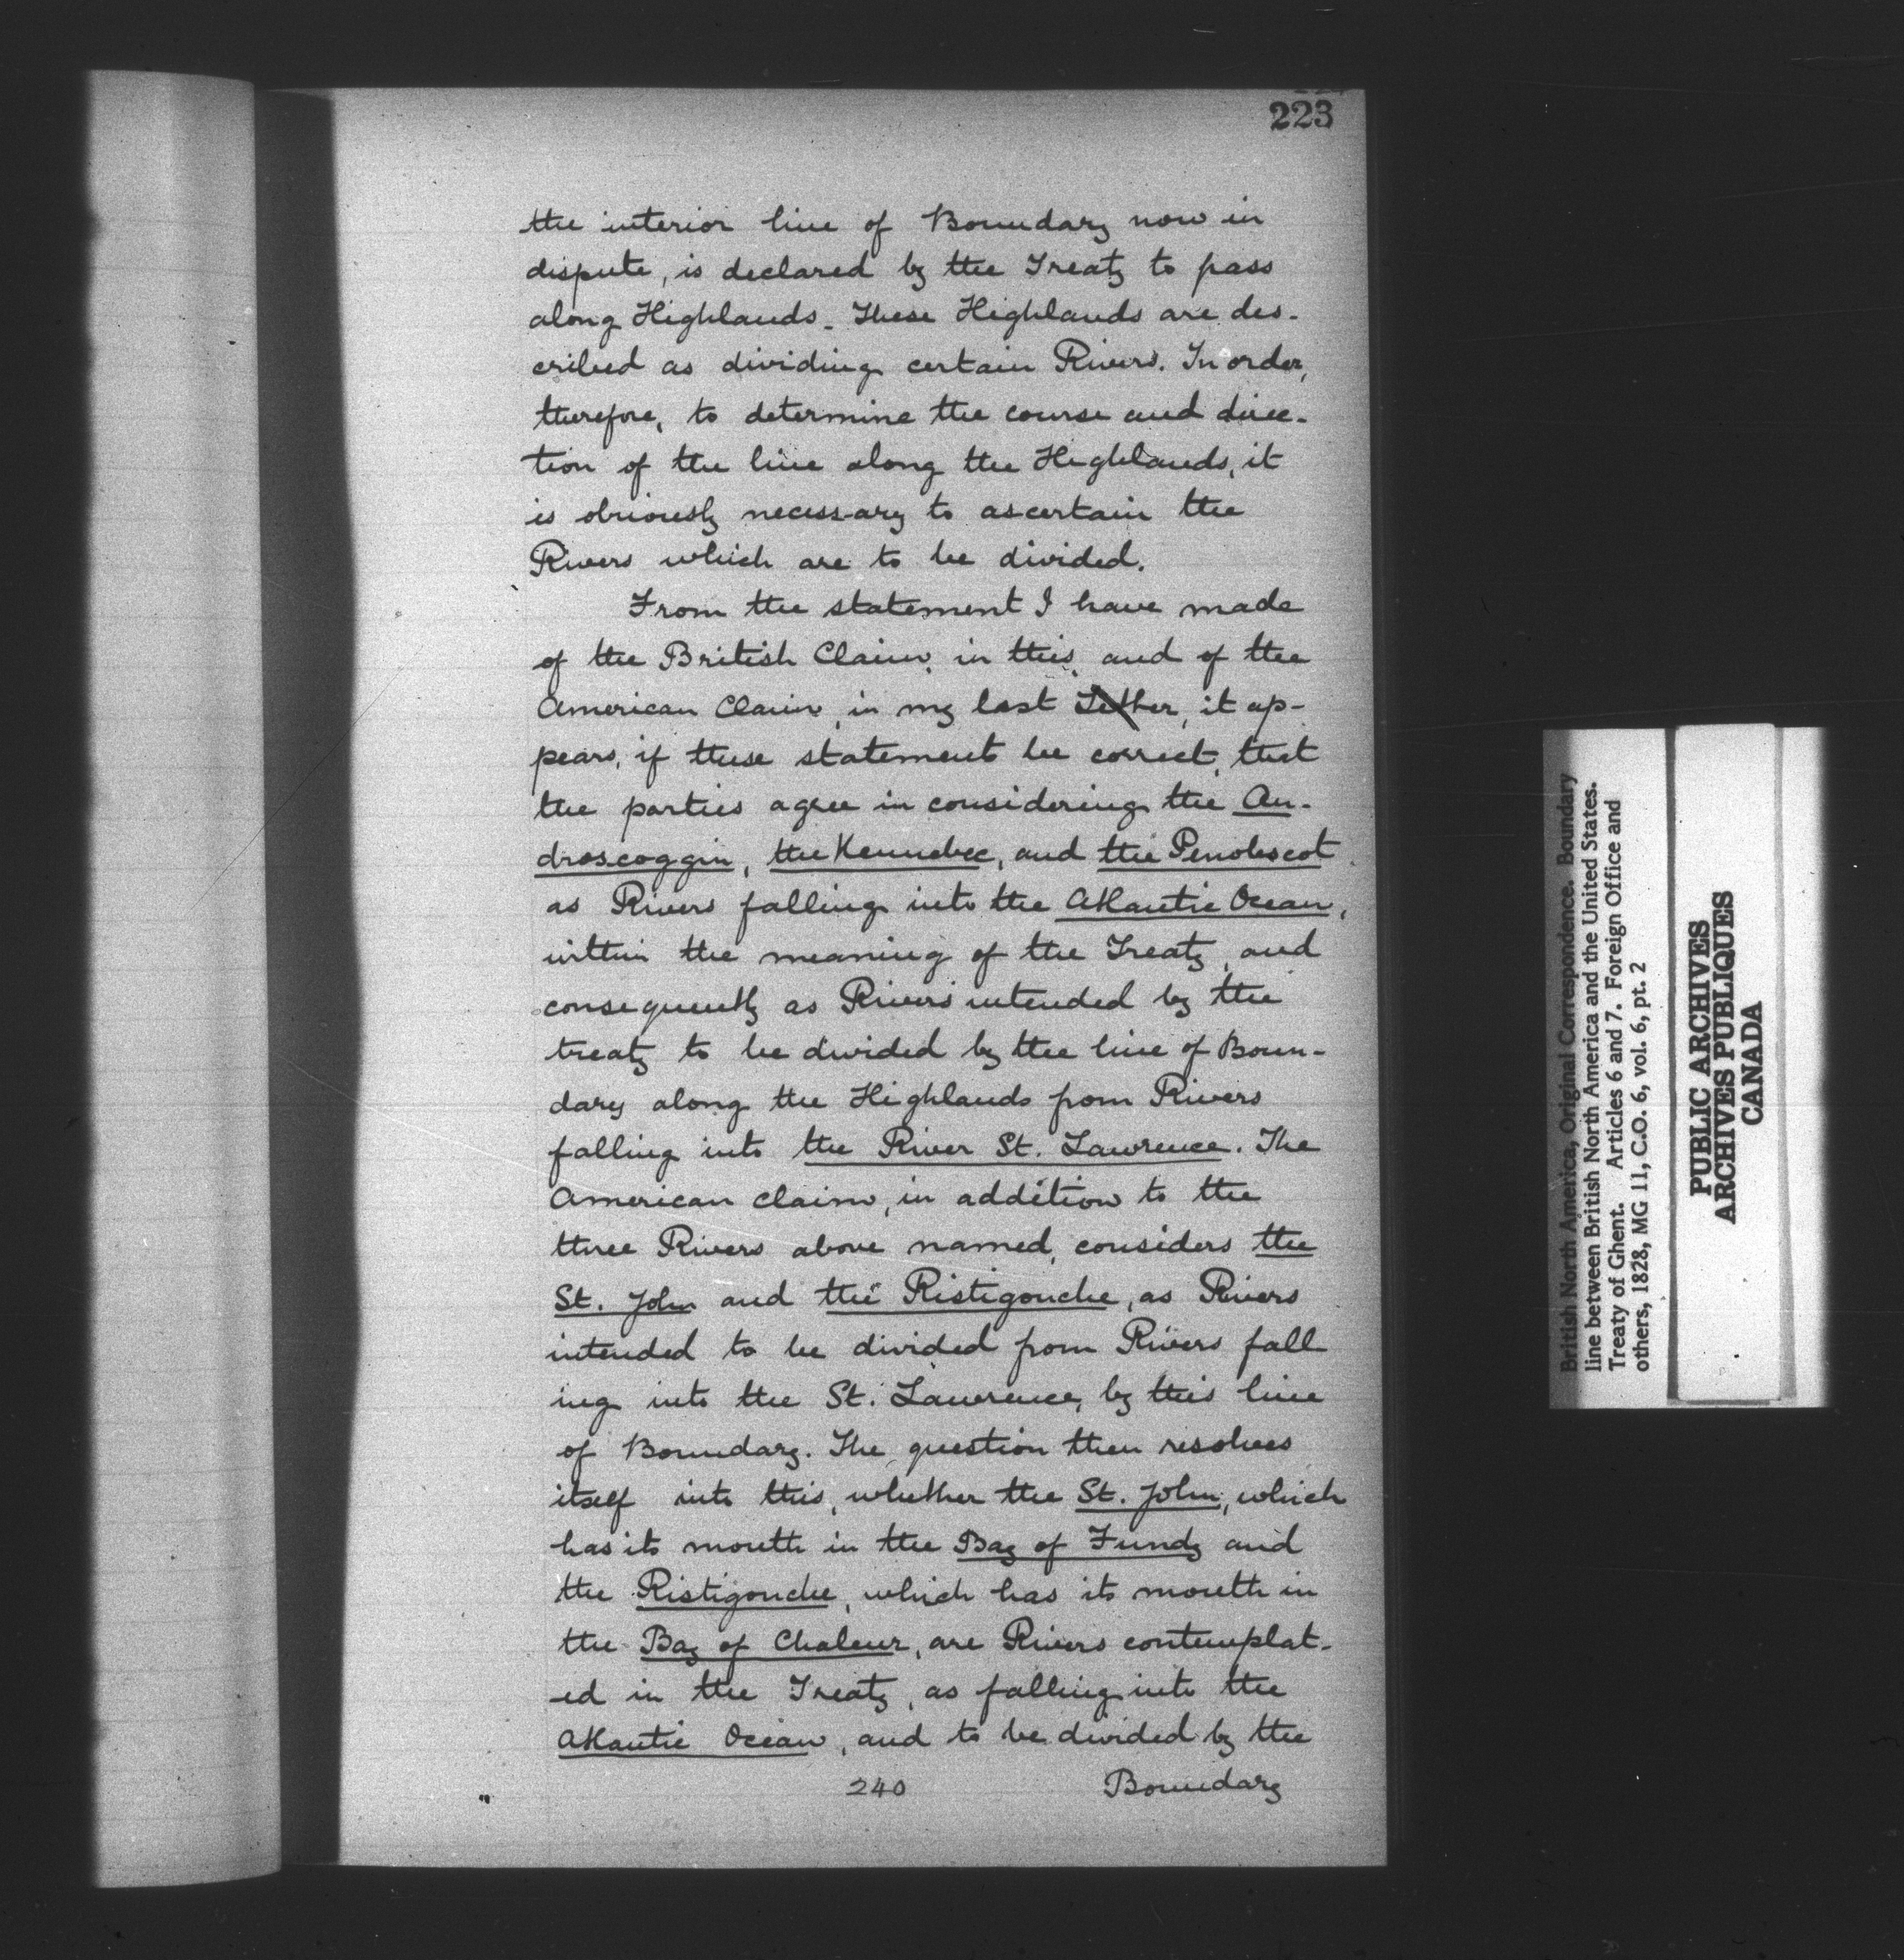 223
the interior line of Boundary now in
dispute, is declared by the Treaty to pass
along Highlands. These Highlands are des-
cribed as dividing certain Rivers. In order,
therefore, to determine the course and direc-
tion of the line along the Highlands, it
is obviously necessary to ascertain the
Rivers which are to be divided.
From the statement I have made
of the British Claim, in this, and of the
American Claim, in my last Letter, it ap-
pears, if these statements be correct, that
the parties agree in considering the An-
droscoggin, the Kennebec, and the Penobscot
as Rivers falling into the Atlantic Ocean,
within the meaning of the Treaty, and
consequently as Rivers intended by the
treaty to be divided by the line of Boun-
dary along the Highlands from Rivers
falling into the River St. Lawrence. The
American claim, in addition to the
three Rivers above named, considers the
St. John and the Ristigouche, as Rivers
intended to be divided from Rivers fall
ing into the St. Lawrence, by this line
of Boundary. The question then resolves
itself into this, whether the St. John, which
has its mouth in the Bay of Fundy and
the Ristigouche, which has its mouth in
the Bay of Chaleur, are Rivers contemplat-
-ed in the Treaty, as falling into the
Atlantic Ocean, and to be divided by the
240 Boundary
British North America, Original Correspondence. Boundary
line between British North America and the United States.
Treaty of Ghent. Articles 6 and 7. Foreign Office and
others, 1828, MG 11, C.O. 6, vol. 6, pt. 2
PUBLIC ARCHIVES
ARCHIVES PUBLIQUES
CANADA